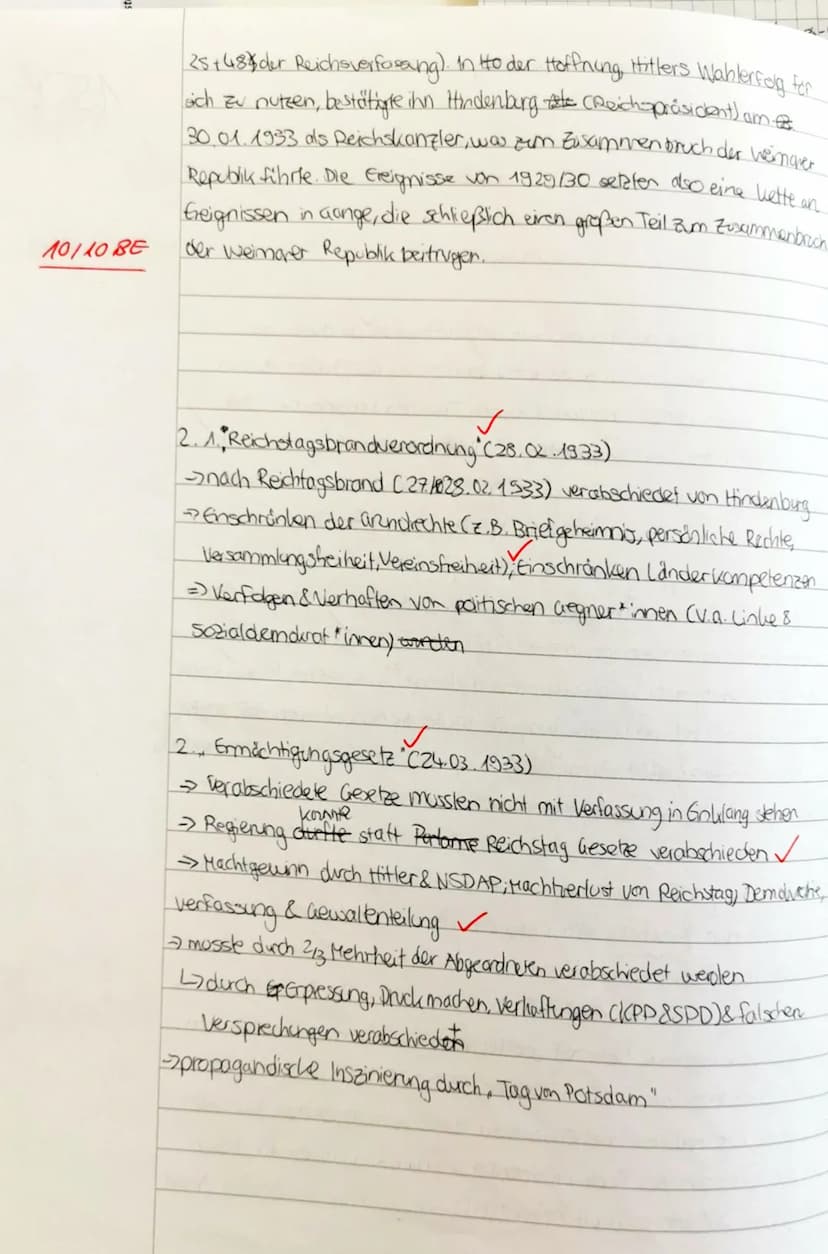 25+48 der Reichsverfassung). In Ho der Hoffnung, Hitlers Wahlerfolg für
sich zu nutzen, bestätigte ihn Hindenburg (Reichspräsident) am
30.01.1933 als Reichskanzler, was zum Zusammenbruch der Weimarer
Republik führte. Die Ereignisse von 1929/30 setzten also eine Kette an
Ereignissen in Gange, die schließlich einen großen Teil zum Zusammenbruch
10/10 BE
der Weimarer Republik beitrugen.
2. 1. "Reichstagsbrandverordnung" (28.02.1933)
→ nach Reichtagsbrand (27/028.02.1933) verabschiedet von Hindenburg
→ Einschränken der Grundrechte (z.B. Briefgeheimnis, persönliche Rechte,
Versammlungsfreiheit, Vereinsfreiheit); Einschränken Länderkompetenzen
⇒ Verfolgen & Verhaften von politischen Gegner*innen (v.a. Linke &
Sozialdemokrat*innen) wurden
2. „Ermächtigungsgesetz" (24.03.1933)
→ Verabschiedete Gesetze mussten nicht mit Verfassung in Einklang stehen
konnte
→ Regierung durfte statt Parlame Reichstag Gesetze verabschieden
→ Machtgewinn durch Hitler & NSDAP; Machtverlust von Reichstag, Demokratie,
verfassung & Gewaltenteilung
→ musste durch 2/3 Mehrheit der Abgeordneten verabschiedet werden
↳ durch Erpressung, Druck machen, Verhaftungen (KPD & SPD) & falschen
Versprechungen verabschiedet
→ propagandische Inszinierung durch „Tag von Potsdam"